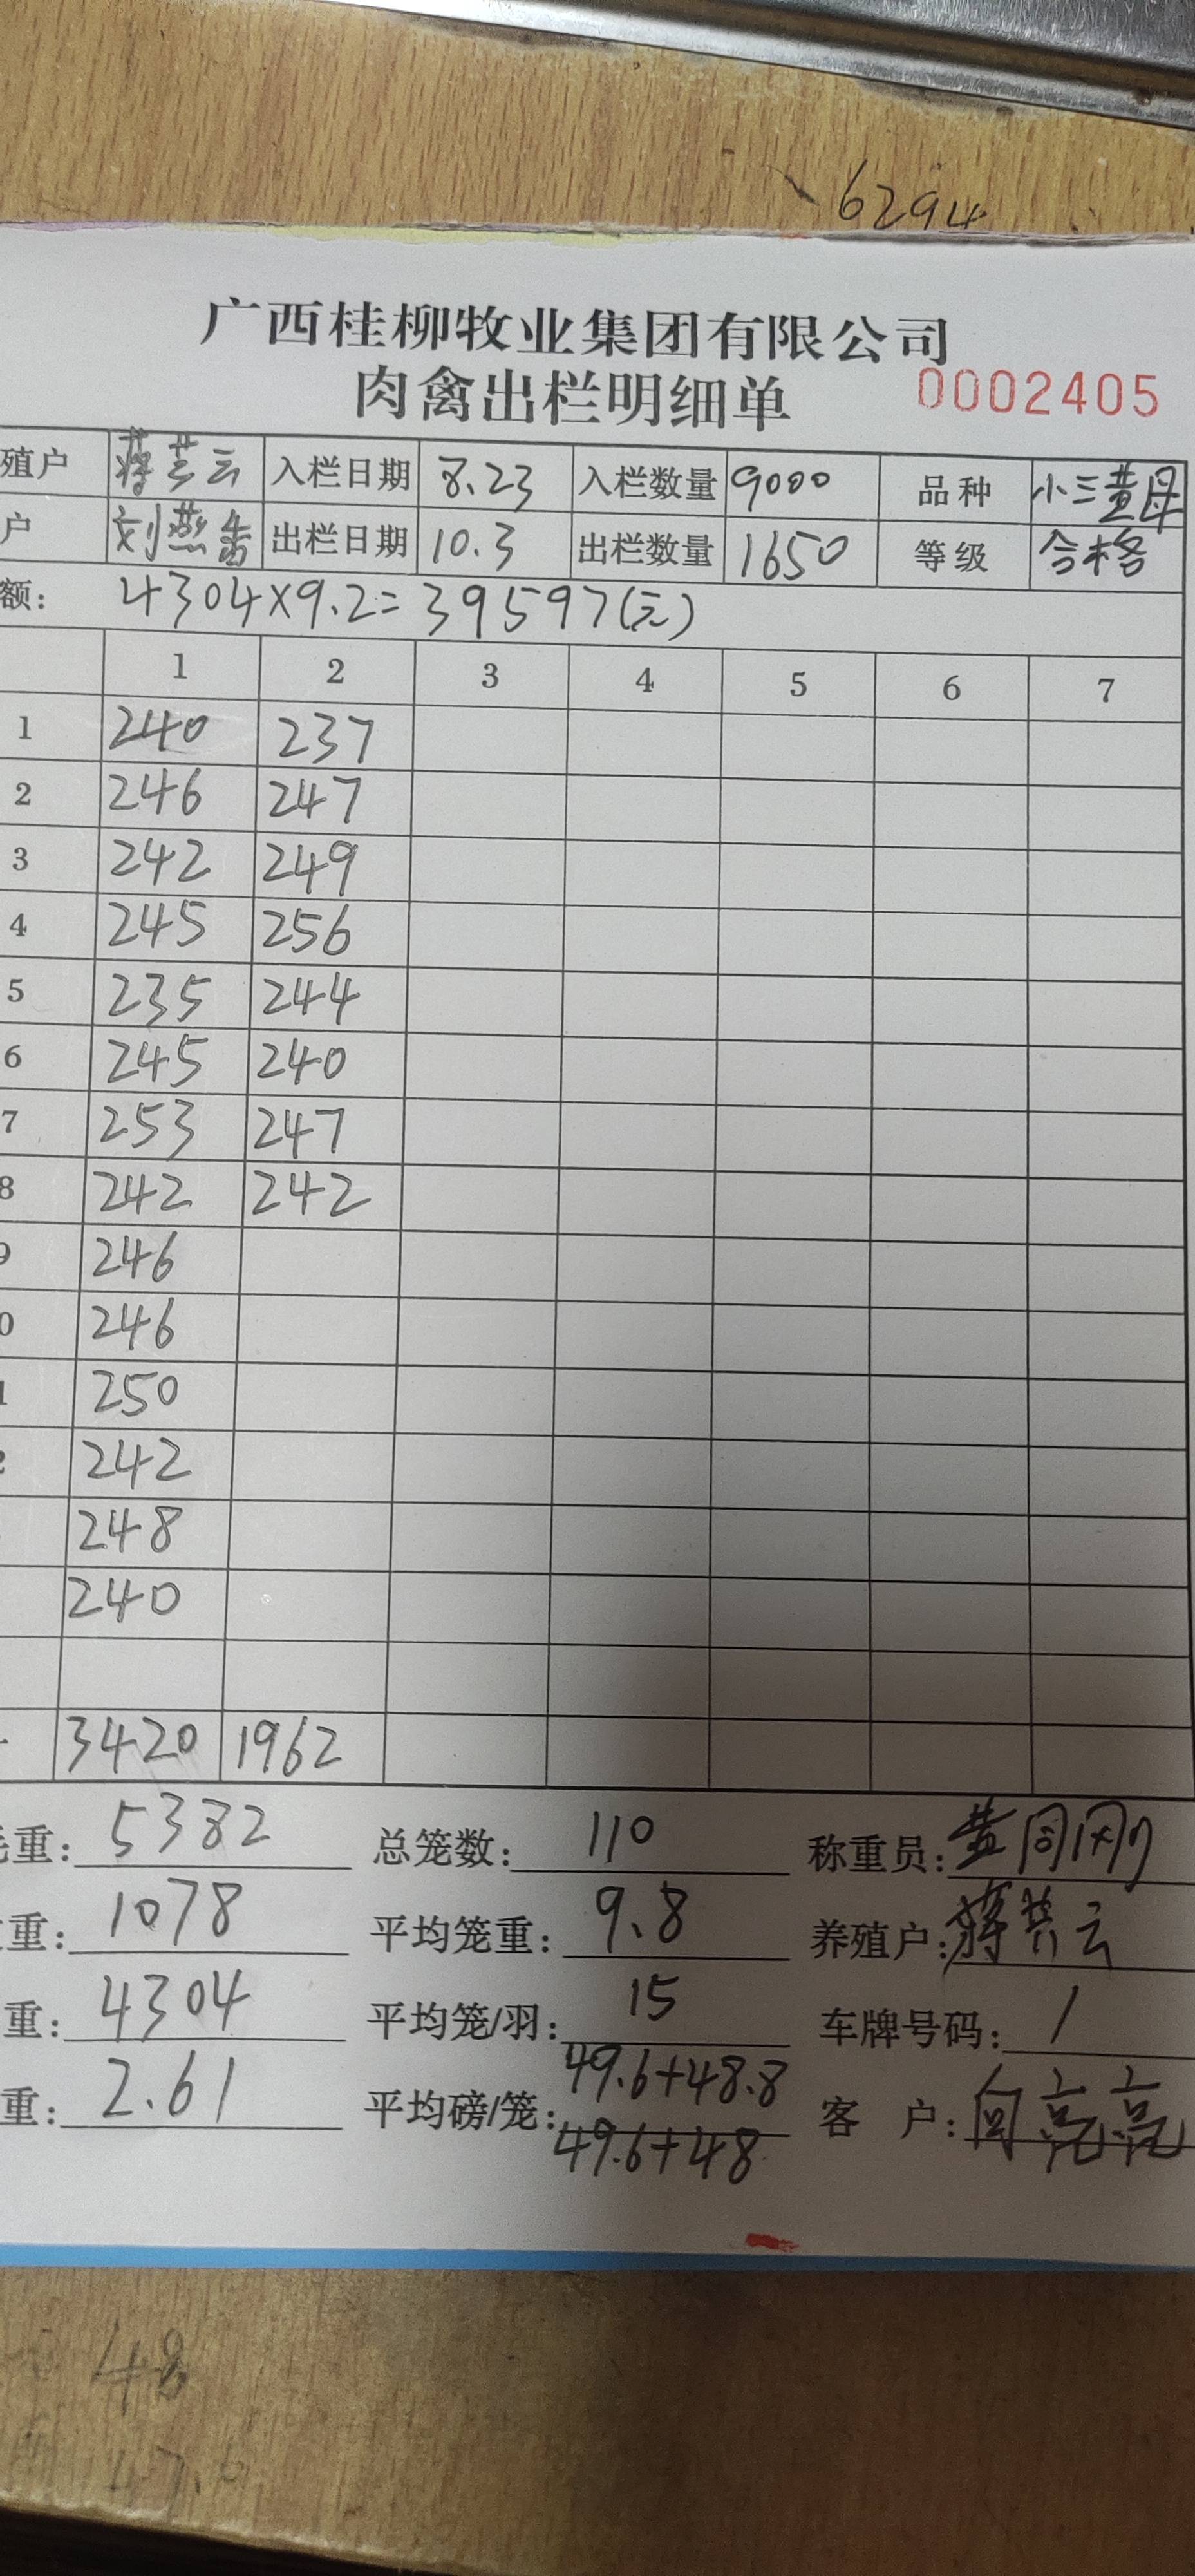 6294
广西桂柳牧业集团有限公司
肉禽出栏明细单 0002405
殖户 蒋芸云 入栏日期 8.23 入栏数量 9000 品种 小三黄母
户 刘燕 出栏日期 10.3 出栏数量 1650 等级 合格
额: 4304×9.2=39597(元)
1 2 3 4 5 6 7
1 240 237
2 246 247
3 242 249
4 245 256
5 235 244
6 245 240
7 253 247
8 242 242
9 246
0 246
1 250
2 242
248
240
3420 1962
毛重: 5382 总笼数: 110 称重员: 黄同刚
重: 1078 平均笼重: 9.8 养殖户: 蒋芸云
重: 4304 平均笼/羽: 15 车牌号码: /
重: 2.61 平均磅/笼: 49.6+48.8 客 户: 向亮亮
49.6+48
48
47.6